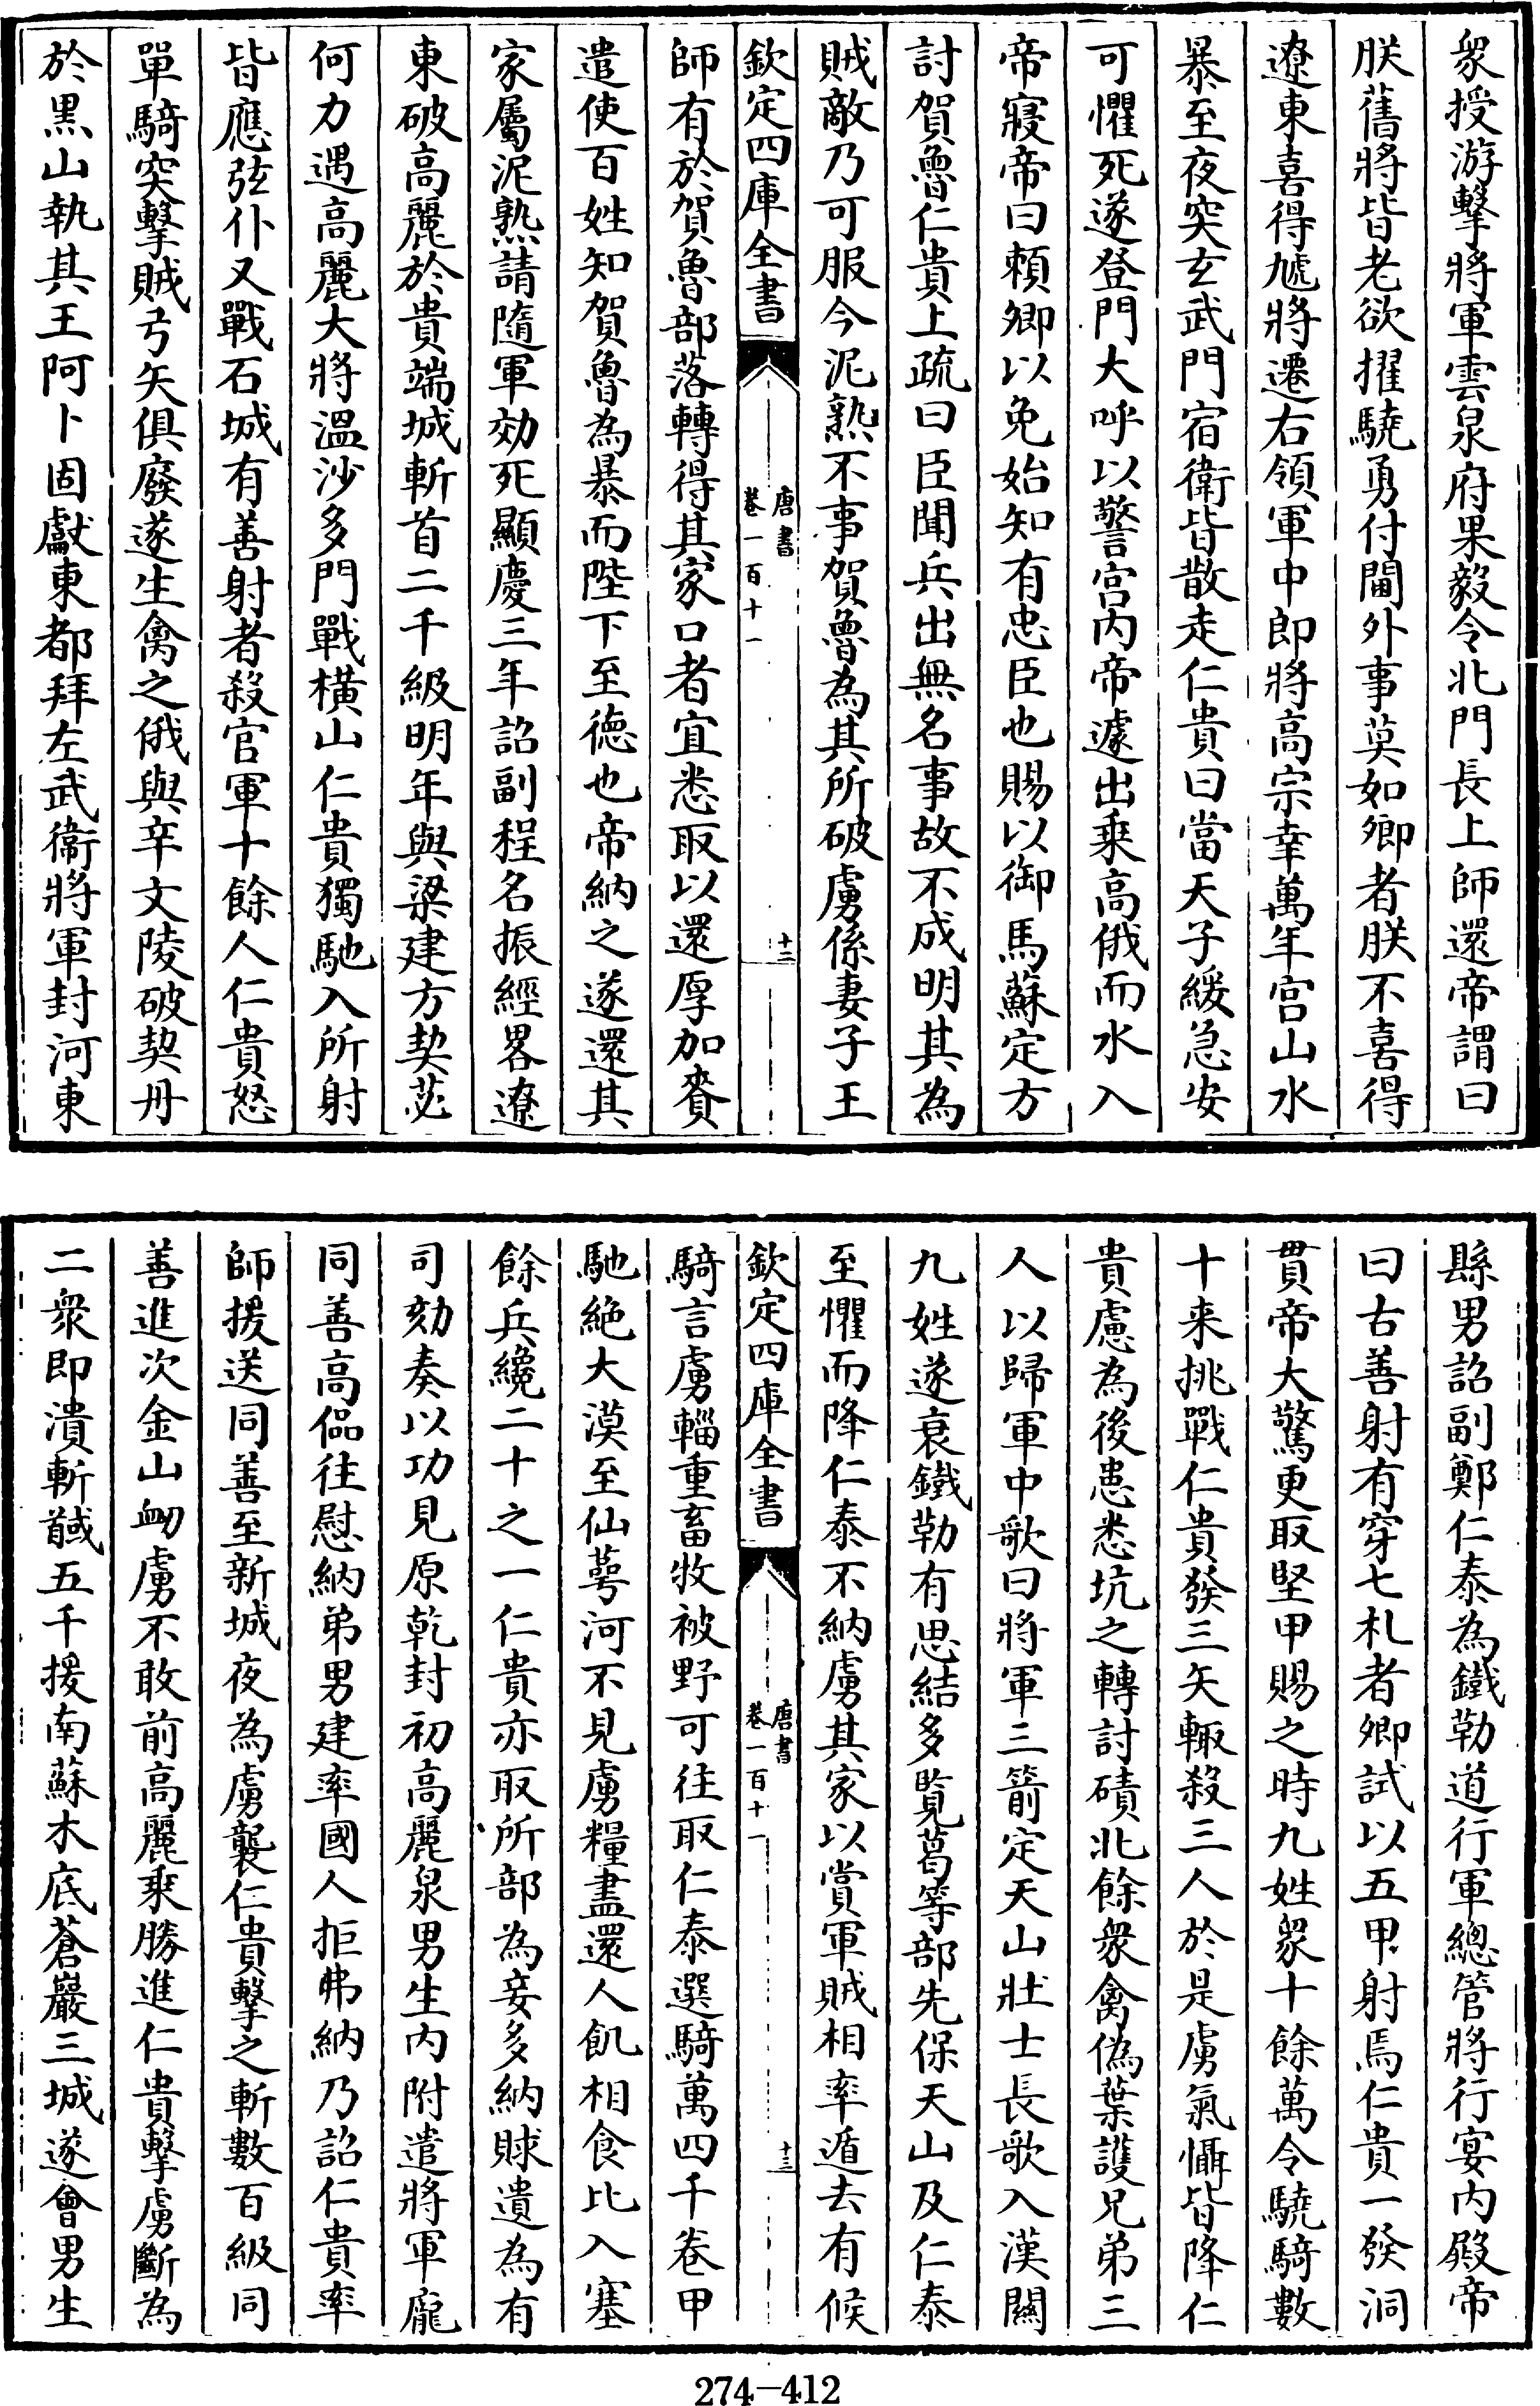 衆授游擊將軍雲泉府果毅令北門長上師還帝謂曰
朕舊將皆老欲擢驍勇付閫外事莫如卿者朕不喜得
遼東喜得虓將遷右領軍中郎將高宗幸萬年宮山水
暴至夜突玄武門宿衛皆散走仁貴曰當天子緩急安
可懼死遂登門大呼以警宮內帝遽出乗高俄而水入
帝寢帝曰頼卿以免始知有忠臣也賜以御馬蘇定方
討賀魯仁貴上疏曰臣聞兵出無名事故不成明其為
賊敵乃可服今泥熟不事賀魯為其所破虜係妻子王
欽定四庫全書
唐書
卷一百十一
十二
師有於賀魯部落轉得其家口者宜悉取以還厚加賚
遣使百姓知賀魯為暴而陛下至德也帝納之遂還其
家屬泥熟請隨軍効死顯慶三年詔副程名振經畧遼
東破高麗於貴端城斬首二千級明年與梁建方契苾
何力遇高麗大將溫沙多門戰橫山仁貴獨馳入所射
皆應弦仆又戰石城有善射者殺官軍十餘人仁貴怒
單騎突擊賊弓矢俱廢遂生禽之俄與辛文陵破契丹
於黒山執其王阿卜固獻東都拜左武衞將軍封河東
縣男詔副鄭仁泰為鐵勒道行軍總管將行宴內殿帝
曰古善射有穿七札者卿試以五甲射焉仁貴一發洞
貫帝大驚更取堅甲賜之時九姓衆十餘萬令驍騎數
十来挑戰仁貴發三矢輙殺三人於是虜氣懾皆降仁
貴慮為後患悉坑之轉討磧北餘衆禽偽葉護兄弟三
人以歸軍中歌曰將軍三箭定天山壯士長歌入漢關
九姓遂衰鐵勒有思結多覧葛等部先保天山及仁泰
至懼而降仁泰不納虜其家以賞軍賊相率遁去有候
欽定四庫全書
唐書
卷一百十一
十三
騎言虜輜重畜牧被野可往取仁泰選騎萬四千卷甲
馳絶大漠至仙萼河不見虜糧盡還人飢相食比入塞
餘兵纔二十之一仁貴亦取所部為妾多納賕遺為有
司劾奏以功見原乾封初高麗泉男生內附遣將軍龐
同善高偘往慰納弟男建率國人拒弗納乃詔仁貴率
師援送同善至新城夜為虜襲仁貴擊之斬數百級同
善進次金山衂虜不敢前高麗乗勝進仁貴擊虜斷為
二衆即潰斬馘五千援南蘇木底蒼巖三城遂會男生
274-412